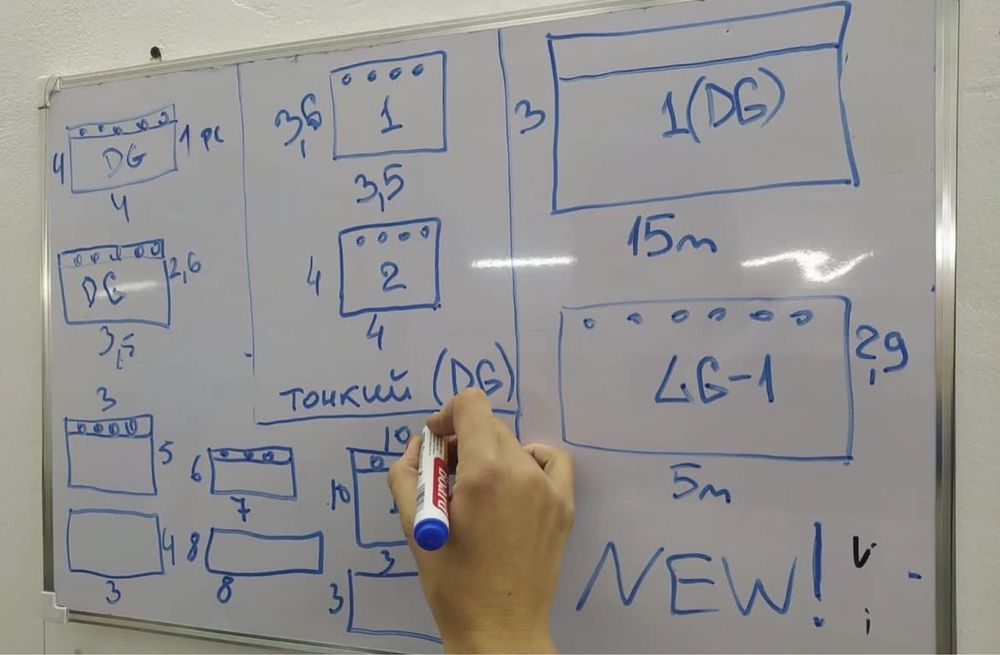 4
DG
1 pc
4
DG
2,6
3,5
3
5
4
3
6
7
8
8
3,6
1
3,5
4
2
4
тонкий (DG)
10
10
3
3
3
1(DG)
15m
LG-1
2,9
5m
NEW!